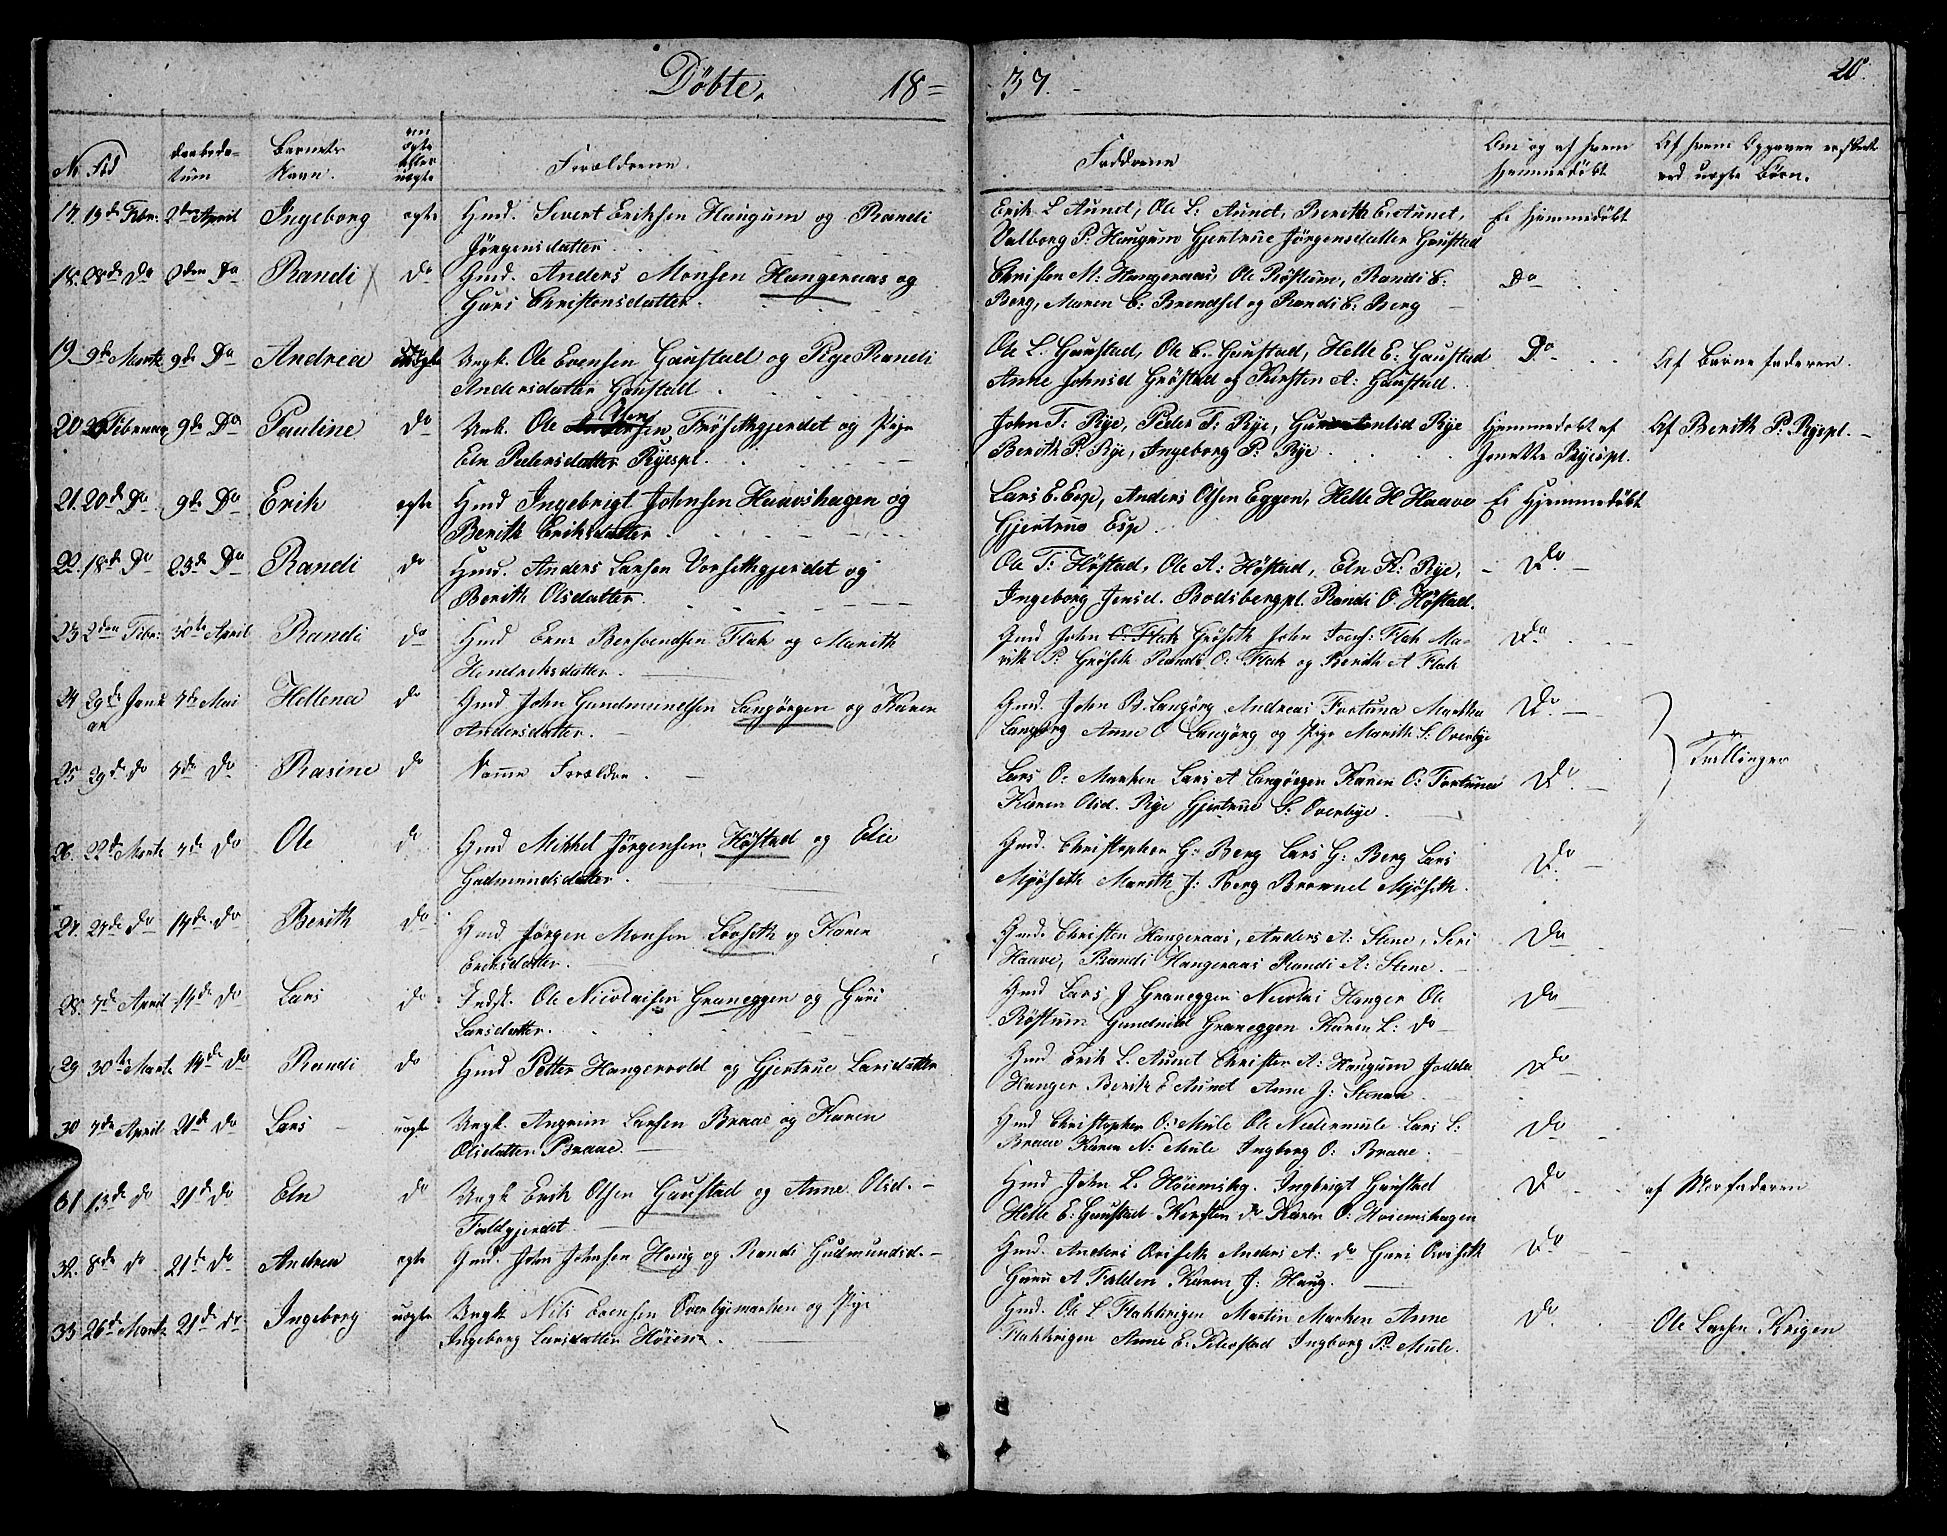 Döbte, 18= 37. 20.
No Fød daabsda- tum Barnets Navn. om ægte eller uægte Forældrene. Faddrene Om og af hvem Hjemmedøbt Af hvem Opgaven er skedt ved uægte Børn.
17. 2den April Ingeborg egte Gmd. Sivert Eriksen Haugum og Randi
Jörgensdatter
Erik L Aunet, Ole L: Aunet, Berith E: Aunet,
Valborg P: Haugum Gjertrue Jörgensdatter Gaustad
Ei Hjemmedøbt
18. 28de Do 2den Do Randi Do Gmd. Anders Monsen Hangeraas og
Guri Christensdatter.
Christen M: Hangeraas, Ole Röstum, Randi C:
Berg, Maren C: Brendsel og Randi C: Berg
Do
19. 9de Marts 9de Do Andrea uægte Ungk. Ole Evensen Gaustad og Pige Randi
Andersdatter Gaustad
Ole L. Gaustad, Ole E. Gaustad, Helle E: Gaustad
Anne Johnsd Gröstad og Kirsten A: Gaustad.
Do
Af Barnefaderen.
20 Februar 9de Do Pauline Do Unk. Ole Olsen Frösethgjerdet og Pige
Eln Pedersdatter Ryespl.
John T. Rye, Peder T: Rye, Rye
Berith P. Rye, Ingeborg P. Rye
Hjemmedøbt af
Jonetta Ryespl.
Af Berith P: Ryepl.
21. 20de Do 9de Do Erik egte Gmd Ingebrigt Johnsen Haavshagen og
Berith Eriksdatter
Lars E. Esp, Anders Olsen Eggen, Helle H Haave
Gjertrue Esp.
Ei Hjemmedøbt
22. 18de Do 23de Do Randi do Hmd. Anders Larsen Vorsethgjerdet og
Berith Olsdatter
Ole T: Höstad, Ole A: Höstad, Eln K: Rye,
Ingeborg Jensd. Bodsbergpl. Randi O. Höstad.
Do
23 2den Febr: 30te April Randi do Hmd Erns Flak og Marith
Hendriksdatter.
Gmd John O. Flak Gröseth John Flak Ma-
rith P: Gröseth Randi O: Flak og Berith A Flak
Do
24 29de Janu
ar 7de Mai Hellena do Gmd John Gundmundsen Langörgen og Karen
Andersdatter.
Gmd. John B. Langörg Andreas Fortuna Martha
Langörg Anne O Langörg og Pige Marith S: Overbye
Do
25 29de do 7de Do Rasine do Samme Forældre.
Lars O: Marken Lars A Langörgen Karen O: Fortuna
Karen Olsd. Rye Gjertrue S: Overbye.
Do
Tvillinger
26. 22de Marts 7de Do Ole do Gmd Mikkel Jörgensen Höstad og Elie
Gudmundsdatter.
Gmd. Christopher G: Berg Lars G: Berg Lars
Mjöseth Marith J: Berg Mjöseth.
Do
27. 27de do 14de do Berith do Gmd Jörgen Monsen Lerseth og Karen
Eriksdatter.
Gmd. Christen Hangeraas, Anders A: Stene, Seri
Haave, Randi Hangeraas Randi A: Stene.
Do
28. 7de April 14de do Lars do Indst. Ole Nicolaisen Graneggen og Guri
Larsdatter.
Gmd Lars J Graneggen Nicolai Hanger Ole
Röstum Gundnild Graneggen Karen L: do
Do
29 30te Marts 14de do Randi do Hmd Petter Hangervold og Gjertrue Larsdatter
Gmd Erik L. Aunet Christen A: Haugum
Hanger Berith E Aunet Anne J: Stenan
Do
30 7de April 21de do Lars uegte Ungk. Angrim Larsen Braae og Karen
Olsdatter Braae.
Gmd Christopher O: Mule Ole Nedermule Lars L:
Braae Karen N: Mule Ingborg O: Braae.
Do
31 13de do 21de do Eln do Ungk Erik Olsen Gaustad og Anne Olsd.
Faldgjerdet
Gmd John L. Höiemshg. Ingbrigt Gaustad
Helle E: Gaustad Kirsten do Karen O: Hoiemshagen
Do
af Morfaderen
32. 8de do 21de do Andrea egte Gmd. John Johnsen Haug og Randi Gudmundsd.
Gmd. Anders Qviseth Anders A: do Guri Qviseth
Guru A Falden Karen J: Haug.
Do
33 26de Marts 21de do Ingeborg uegte Ungk Nils Evensen Overbyemarken og Pige
Ingeborg Larsdatter Höien.
Gmd. Ole L Flakkrigen Martin Marken Anne
Flakkrigen Anne E: Ingborg P: Mule.
Do
Ole Larsen Krigen